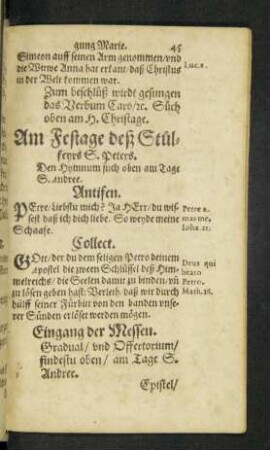 gung Marie. 45
Simeon auff seinen Arm genommen/vnd
die Witwe Anna hat erkant/daß Christus
in der Welt kommen war.
Luc.2.
Zum beschlüß wirdt gesungen
das Verbum Caro/ꝛc. Süch
oben am H. Christage.
Am Festage deß Stül-
feyrs S. Peters.
Den Hymnum such oben am Tage
S. Andree.
Antifen.
PEtre/Liebstu mich? Ja HErr/du wis-
sest daß ich dich liebe. So weyde meine
Schaafe.
Petre a-
mas me.
Joha. 21.
Collect.
GOtt/der du dem seligen Petro deinem
Apostel die zween Schlüssel deß Him-
melreichs/die Seelen damit zu binden/vñ
zu lösen geben hast. Verleih/daß wir durch
hülff seiner Fürbitt von den banden vnse-
rer Sünden erlöset werden mögen.
Deus qui
beato
Petro.
Math.16.
Eingang der Messen.
Gradual/vnd Offertorium/
findestu oben/am Tage S.
Andree.
Epistel/